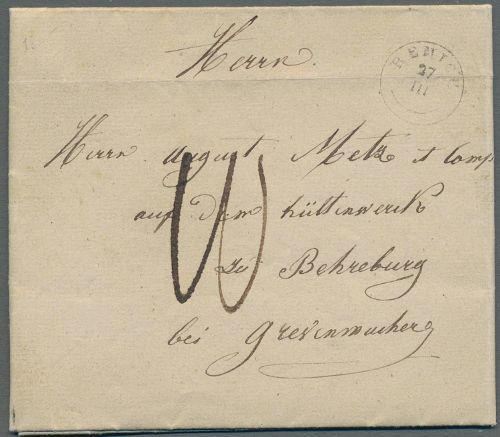 Herrn.
REMICH
27
III
Herrn August Metz & Comp
auf dem hüttenwerck
zu Behreburg
bei Grevenmacher